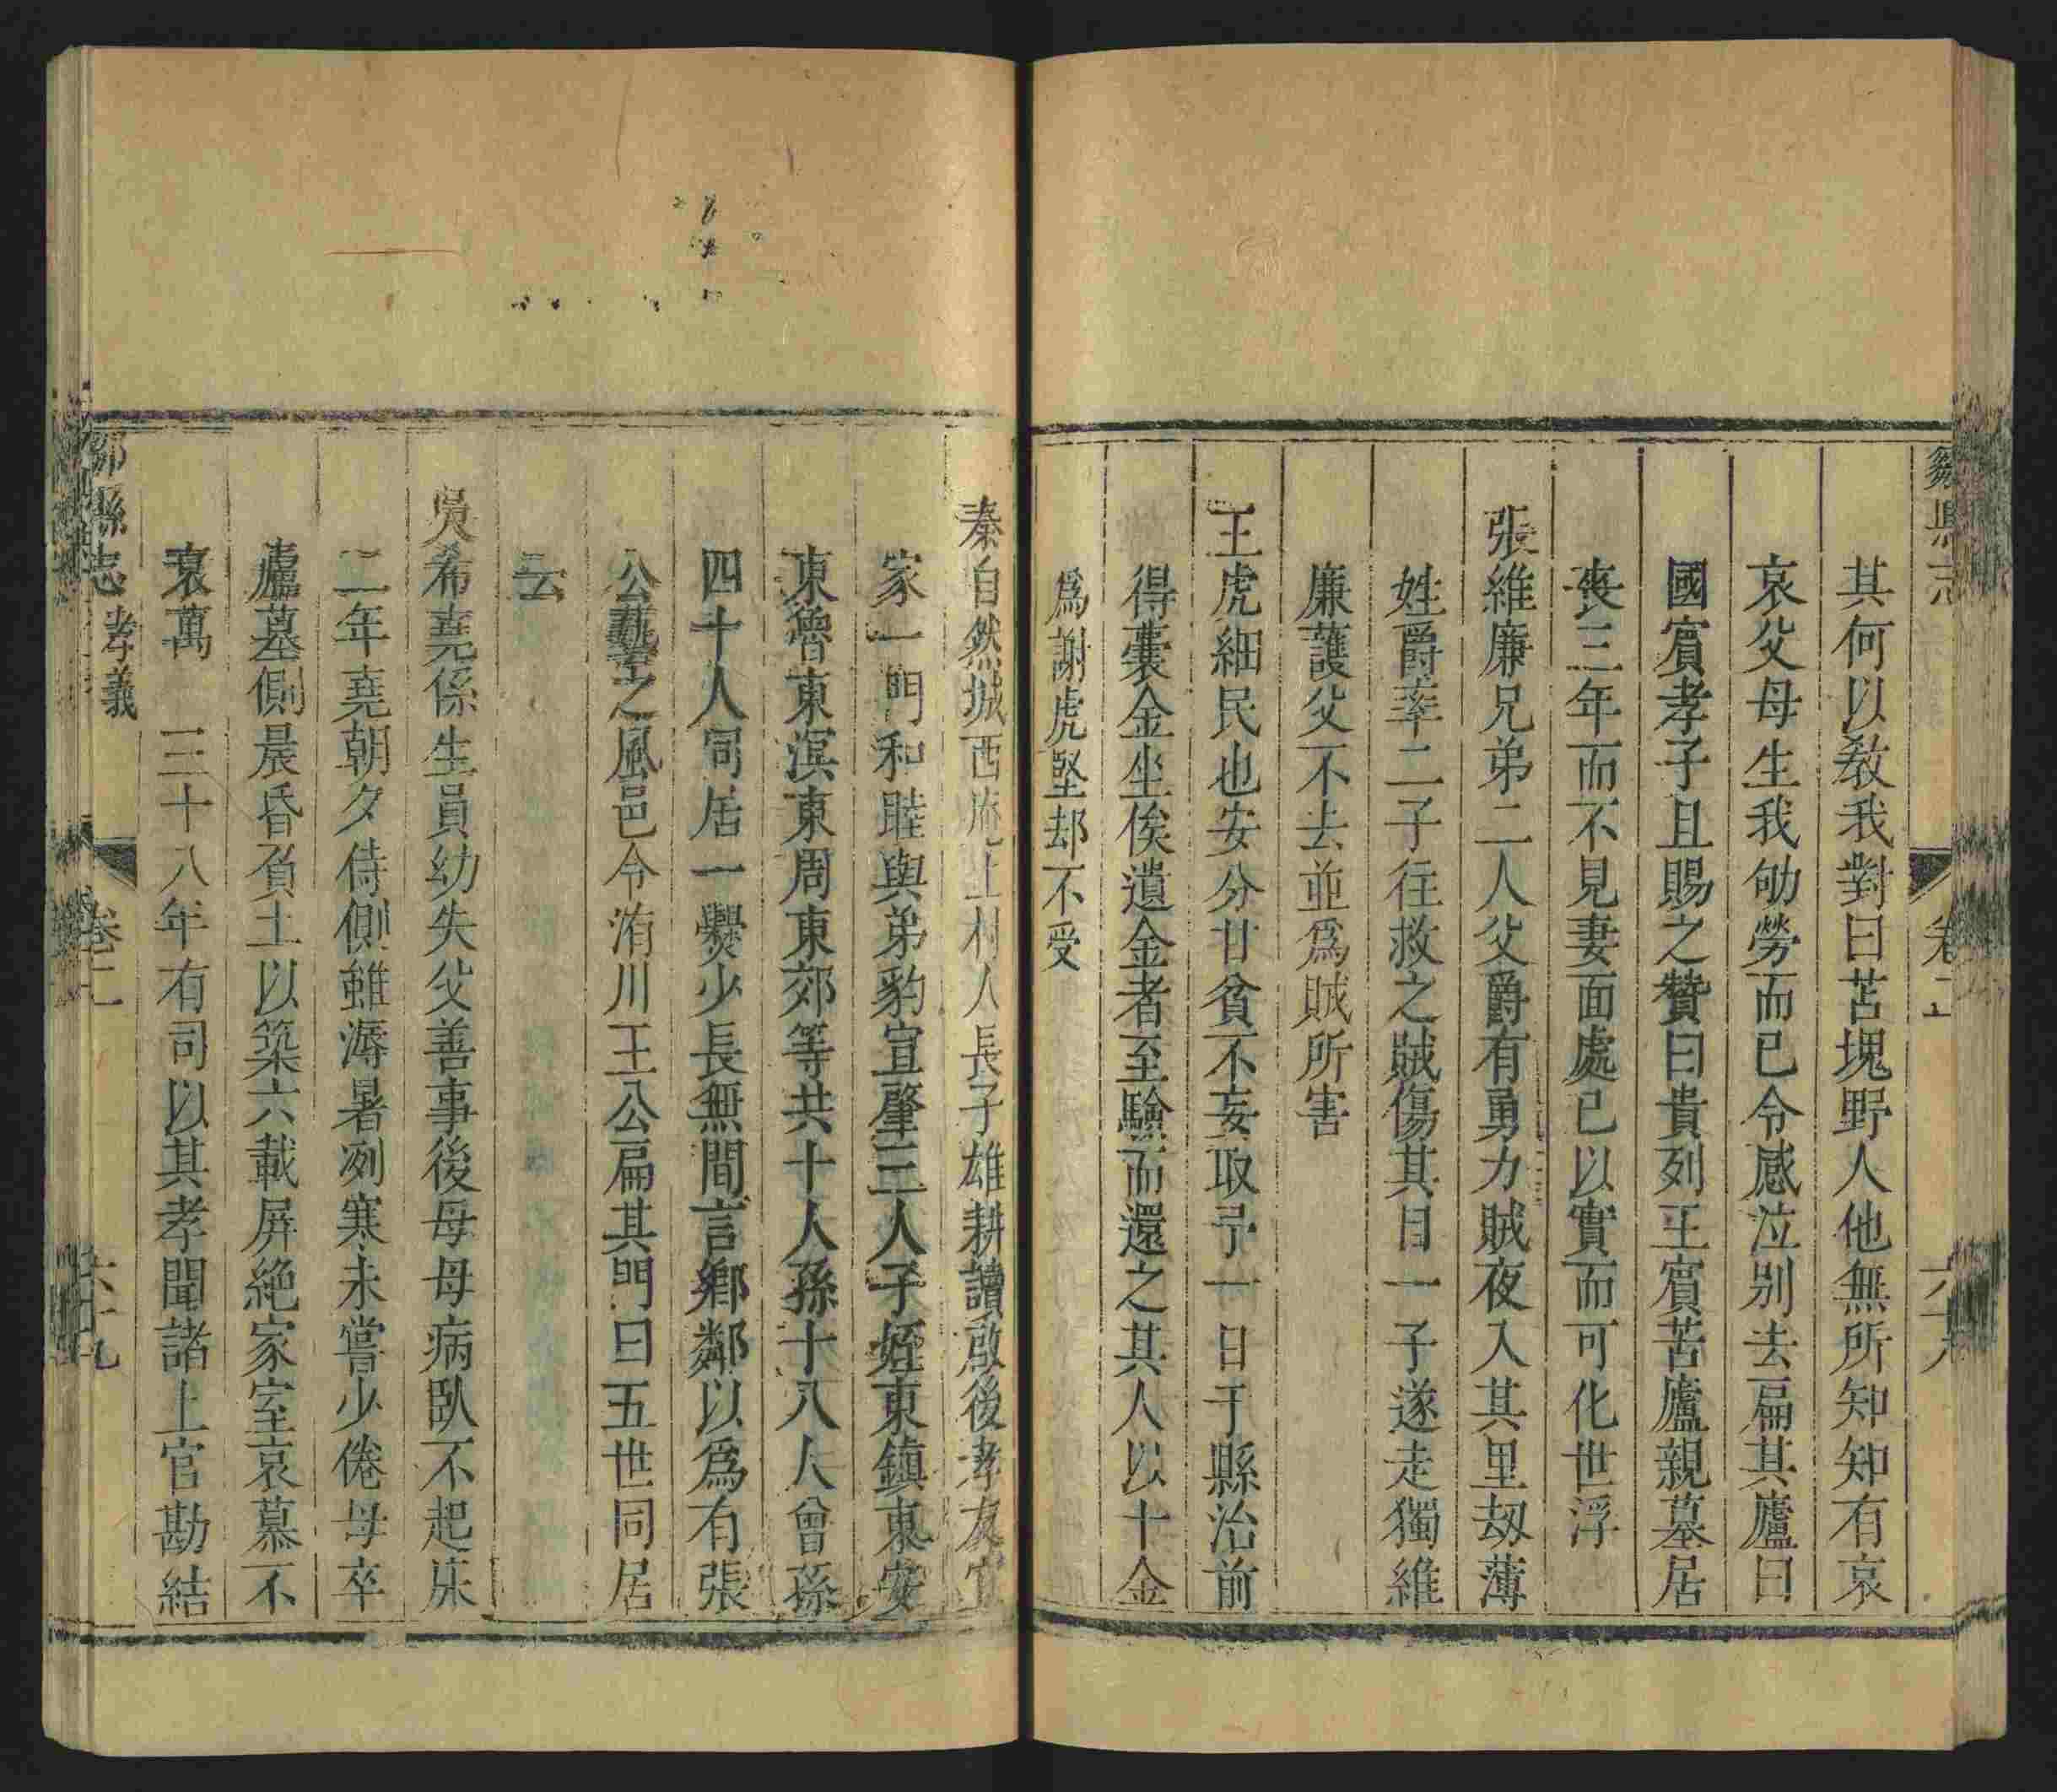 其何以敎我對曰苫塊野人他無所知知有哀
哀父母生我劬勞而已令感泣别去扁其廬曰
國賔孝子且賜之贊曰貴列王賔苫廬親墓居
喪三年而不見妻面處已以實而可化世浮
張維廉兄弟二人父爵有勇力賊夜入其里刼薄
姓爵率二子往救之賊傷其目一子遂走獨維
廉護父不去並爲賊所害
王虎細民也安分甘貧不妄取予一日于縣治前
得囊金坐俟遺金者至驗而還之其人以十金
爲謝虎堅却不受
秦自然城西上村人長子雄耕讀啟後孝友宜
家一門和睦與弟豹宜肇三人子姪東鎮東安
東魯東濱東周東郊等共十人孫十八人曾孫
四十人同居一爨少長無間言鄉鄰以爲有張
公藝之風邑令洧川王公扁其門曰五世同居
云
吳希堯係生員幼失父善事後母母病臥不起床
二年堯朝夕侍側雖溽暑冽寒未嘗少倦母卒
廬墓側晨昏負土以築六載屏絶家室哀慕不
衰萬 三十八年有司以其孝聞諸上官勘結
鄒縣志 孝義 卷二 六十九